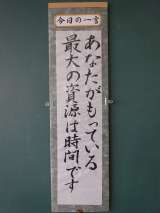 今日の一言
あなたがもっている
最大の資源は時間です